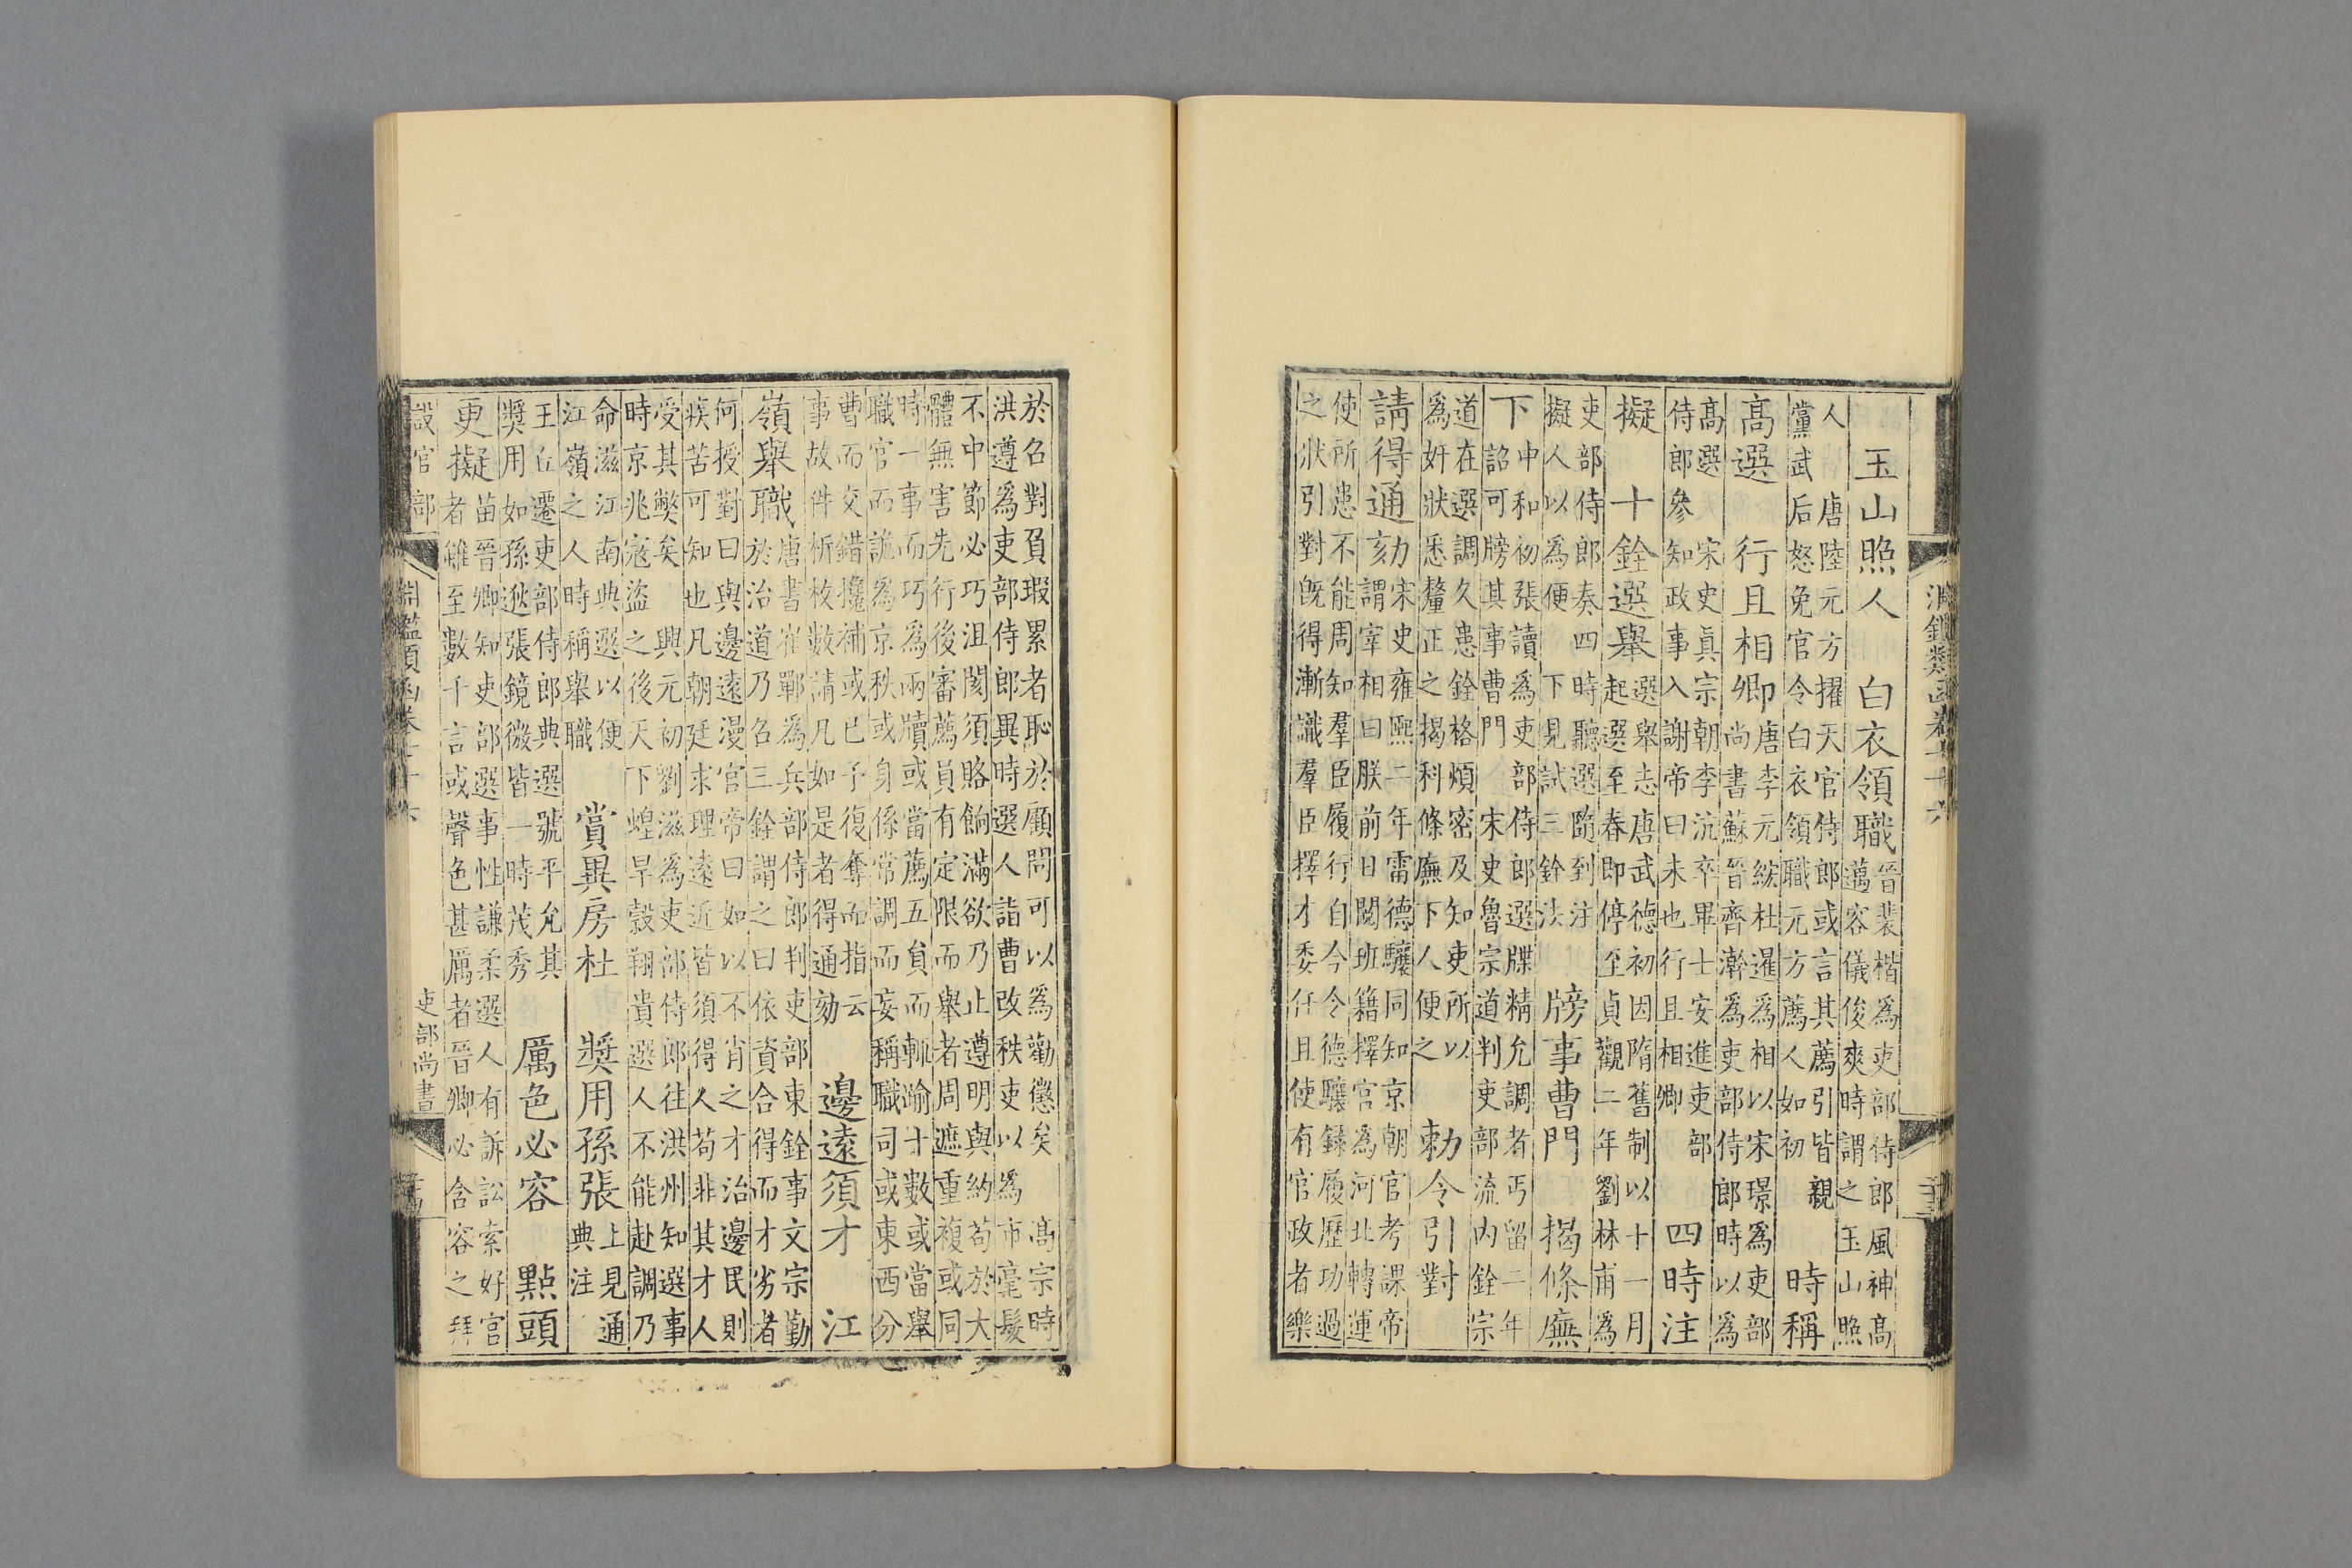 淵鑑類函卷七十六
玉山照人 白衣領職 晉裴楷為吏部侍郎風神高邁容儀俊爽時謂之玉山照
人 唐陸元方擢天官侍郎或言其薦引皆親黨武后怒免官令白衣領職元方薦人如初 時稱
高選 行且相卿 唐李元綋杜暹為相以宋璟為吏部尚書蘇晉齊澣為吏部侍郎時以為
高選 宋史真宗朝李沆卒畢士安進吏部侍郎參知政事入謝帝曰未也行且相卿 四時注
擬 十銓選舉 選舉志唐武德初因隋舊制以十一月起選至春即停至貞觀二年劉林甫為
吏部侍郎奏四時聽選隨到注擬人以為便 下見試三銓法 牓事曹門 揭條廡
下 中和初張讀為吏部侍郎選牒精允調者丐留二年詔可牓其事曹門 宋史魯宗道判吏部流內銓宗
道在選調久患銓格煩密及知吏所以為奸狀悉釐正之揭科條廡下人便之 勅令引對
請得通劾 宋史雍熙二年雷德驤同知京朝官考課帝謂宰相曰朕前日閱班籍擇官為河北轉運
使所患不能周知羣臣履行自今令德驤錄履歷功過之狀引對既得漸識羣臣擇才委任且使有官政者樂
於召對負瑕累者恥於顧問可以為勸懲矣 高宗時洪遵為吏部侍郎異時選人詣曹改秩吏以為市毫髮
不中節必巧沮閡須賂餉滿欲乃止遵明與約苟於大體無害先行後審薦員有定限而舉者周遮重複或同
時一事而巧為兩牘或當薦五員而輒踰十數或當舉職官而詭為京秩或身係常調而妄稱職司或東西分
曹而交錯攙補或已予復奪而指云事故件析枚數請凡如是者得通劾 邊遠須才 江
嶺舉職 唐書崔鄲為兵部侍郎判吏部東銓事文宗勤於治道乃召三銓謂之曰依資合得而才劣者
何授對曰與邊遠漫官帝曰如以不肖之才治邊民則疾苦可知也凡朝廷求理遠近皆須得人苟非其才人
受其弊矣 興元初劉滋為吏部侍郎往洪州知選事時京兆寇盜之後天下蝗旱穀翔貴選人不能赴調乃
命滋江南典選以便江嶺之人時稱舉職 賞異房杜 獎用孫張 上見通典注
王丘遷吏部侍郎典選號平允其獎用如孫逖張鏡微皆一時茂秀 厲色必容 點頭
更擬 苗晉卿知吏部選事性謙柔選人有訴訟索好官者雖至數千言或聲色甚厲者晉卿必含容之拜
設官部 淵鑑類函卷七十六 吏部尚書